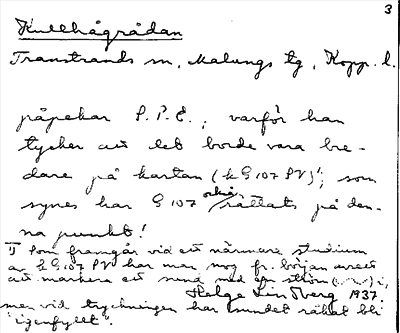 3
Kullhågrådan
Transtrands sn, Malungs tg, Kopp. l.
påpekar P.P.E., varför han
tycker att det borde vara bre-
dare på kartan (k G 107 PV)¹; som
synes har G 107 också rättats på den-
na punkt!
1) Som framgår vid ett närmare studium
av k G 107 PV har man nog fr. början avsett
att markera ett sund med en ström i,
Helge Lindberg 1937.
men vid tryckningen har sundet råkat bli
"igenfyllt".